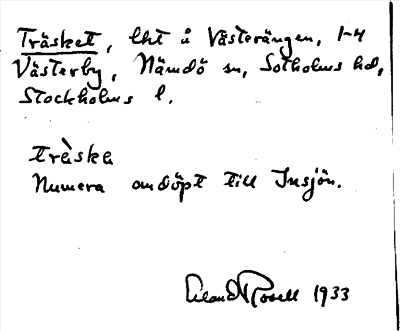 Träsket, lht å Västerängen, 1-4
Västerby, Nämdö sn, Sotholms hd,
Stockholms l.
träska
Numera omdöpt till Insjön.
Erland Rosell 1933